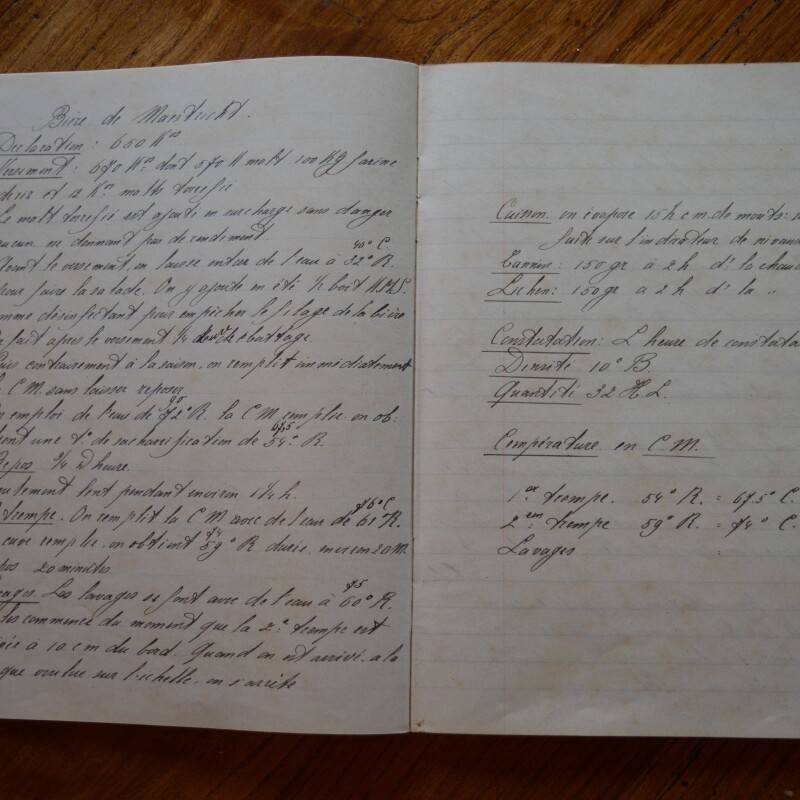 Bière de Maestricht.
Déclaration : 650 Kos
Versement : 670 Kos dont 570 K malt 100 Kg farine
de riz et 12 Kos malt torréfié
Le malt torréfié est ajouté en surcharge sans danger
aucun ne donnant pas de rendement.
Avant le versement, on laisse entrer de l'eau à 32° R. 40° C
pour faire la salade. On y ajoute en été ½ boit
comme désinfectant pour empêcher le filage de la bière
On fait après le versement ½ heure débattage.
Puis contrairement à la saison, on remplit immédiatement
la C M. sans laisser reposer.
En emploi de l'eau de 72° R. 90 la C M. remplie on ob-
tient une t° de saccharification de 54° R. 67,5
Repos ¾ D'heure.
Soutirement lent pendant environ 1¼ h.
2e trempe. On remplit la C M avec de l'eau de 61° R. 76° C
La cuve remplie, on obtient 59° R 74 durée environ 20 M.
Repos 20 minutes.
Lavages. Les lavages se font avec de l'eau à 60° R. 75
Ils commence du moment que la 2e trempe est
à 10 cm du bord. Quand on est arrivé a la
marque voulue sur l'échelle, on s'arrête
Cuisson: on évapore 15 h c m. de mouts:
faite sur l'indicateur de niveau
Tannin: 150 gr à 2 h d' la chaud
Lichen: 150 gr à 2 h d' la "
Constatation: L'heure de constata
Densité 10° B.
Quantité 32 H. L.
Température en C. M.
1er trempe. 54° R. = 67.5° C.
2em trempe 59° R. = 74° C.
Lavages :